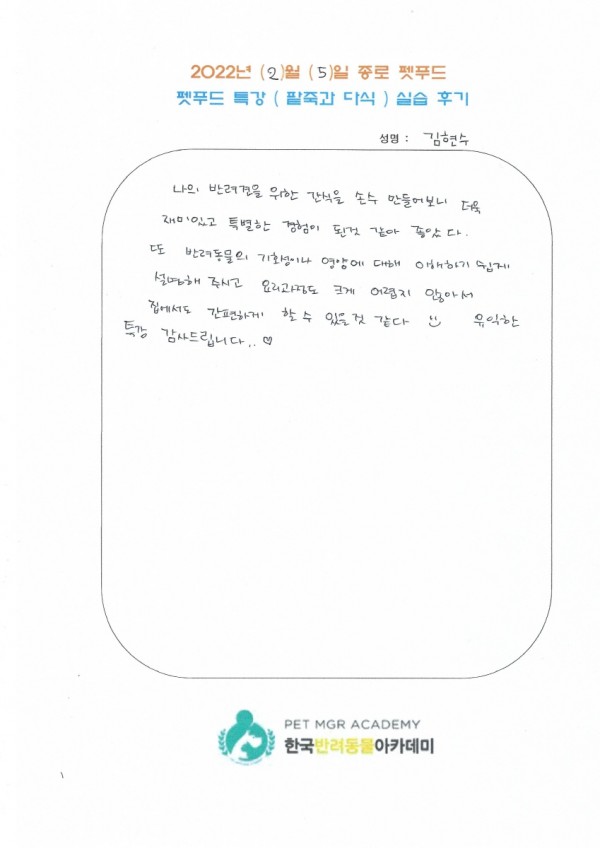 2022년 (2)월 (5)일 종로 펫푸드
펫푸드 특강 ( 팥죽과 다식 ) 실습 후기
성명 : 김현수
나의 반려견을 위한 간식을 손수 만들어보니 더욱
재미있고 특별한 경험이 된것 같아 좋았다.
또 반려동물의 기호성이나 영양에 대해 이해하기 쉽게
설명해 주시고 요리과정도 크게 어렵지 않아서
집에서도 간편하게 할 수 있을것 같다 유익한
특강 감사드립니다.. ♡
PET MGR ACADEMY
한국반려동물아카데미